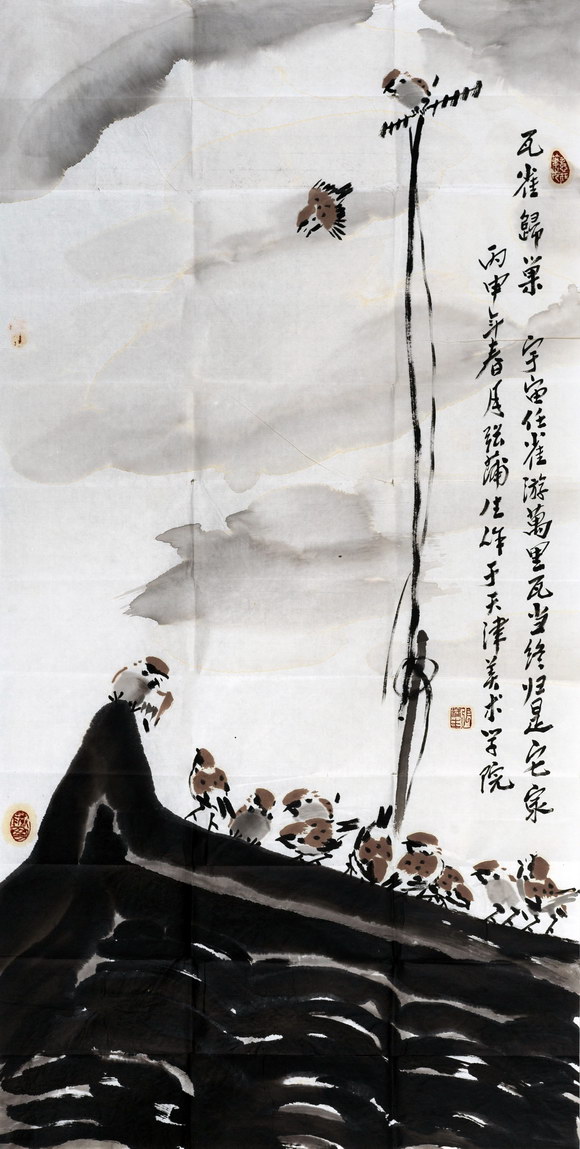 瓦雀歸巢 宇宙任雀游萬里瓦当终归是它家
丙申年春月張蒲生作于天津美术学院